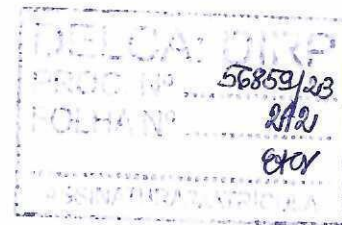 DELCA/DIRP
PROC. Nº 56859/23
FOLHA Nº 212
ASSINATURA/MATRÍCULA